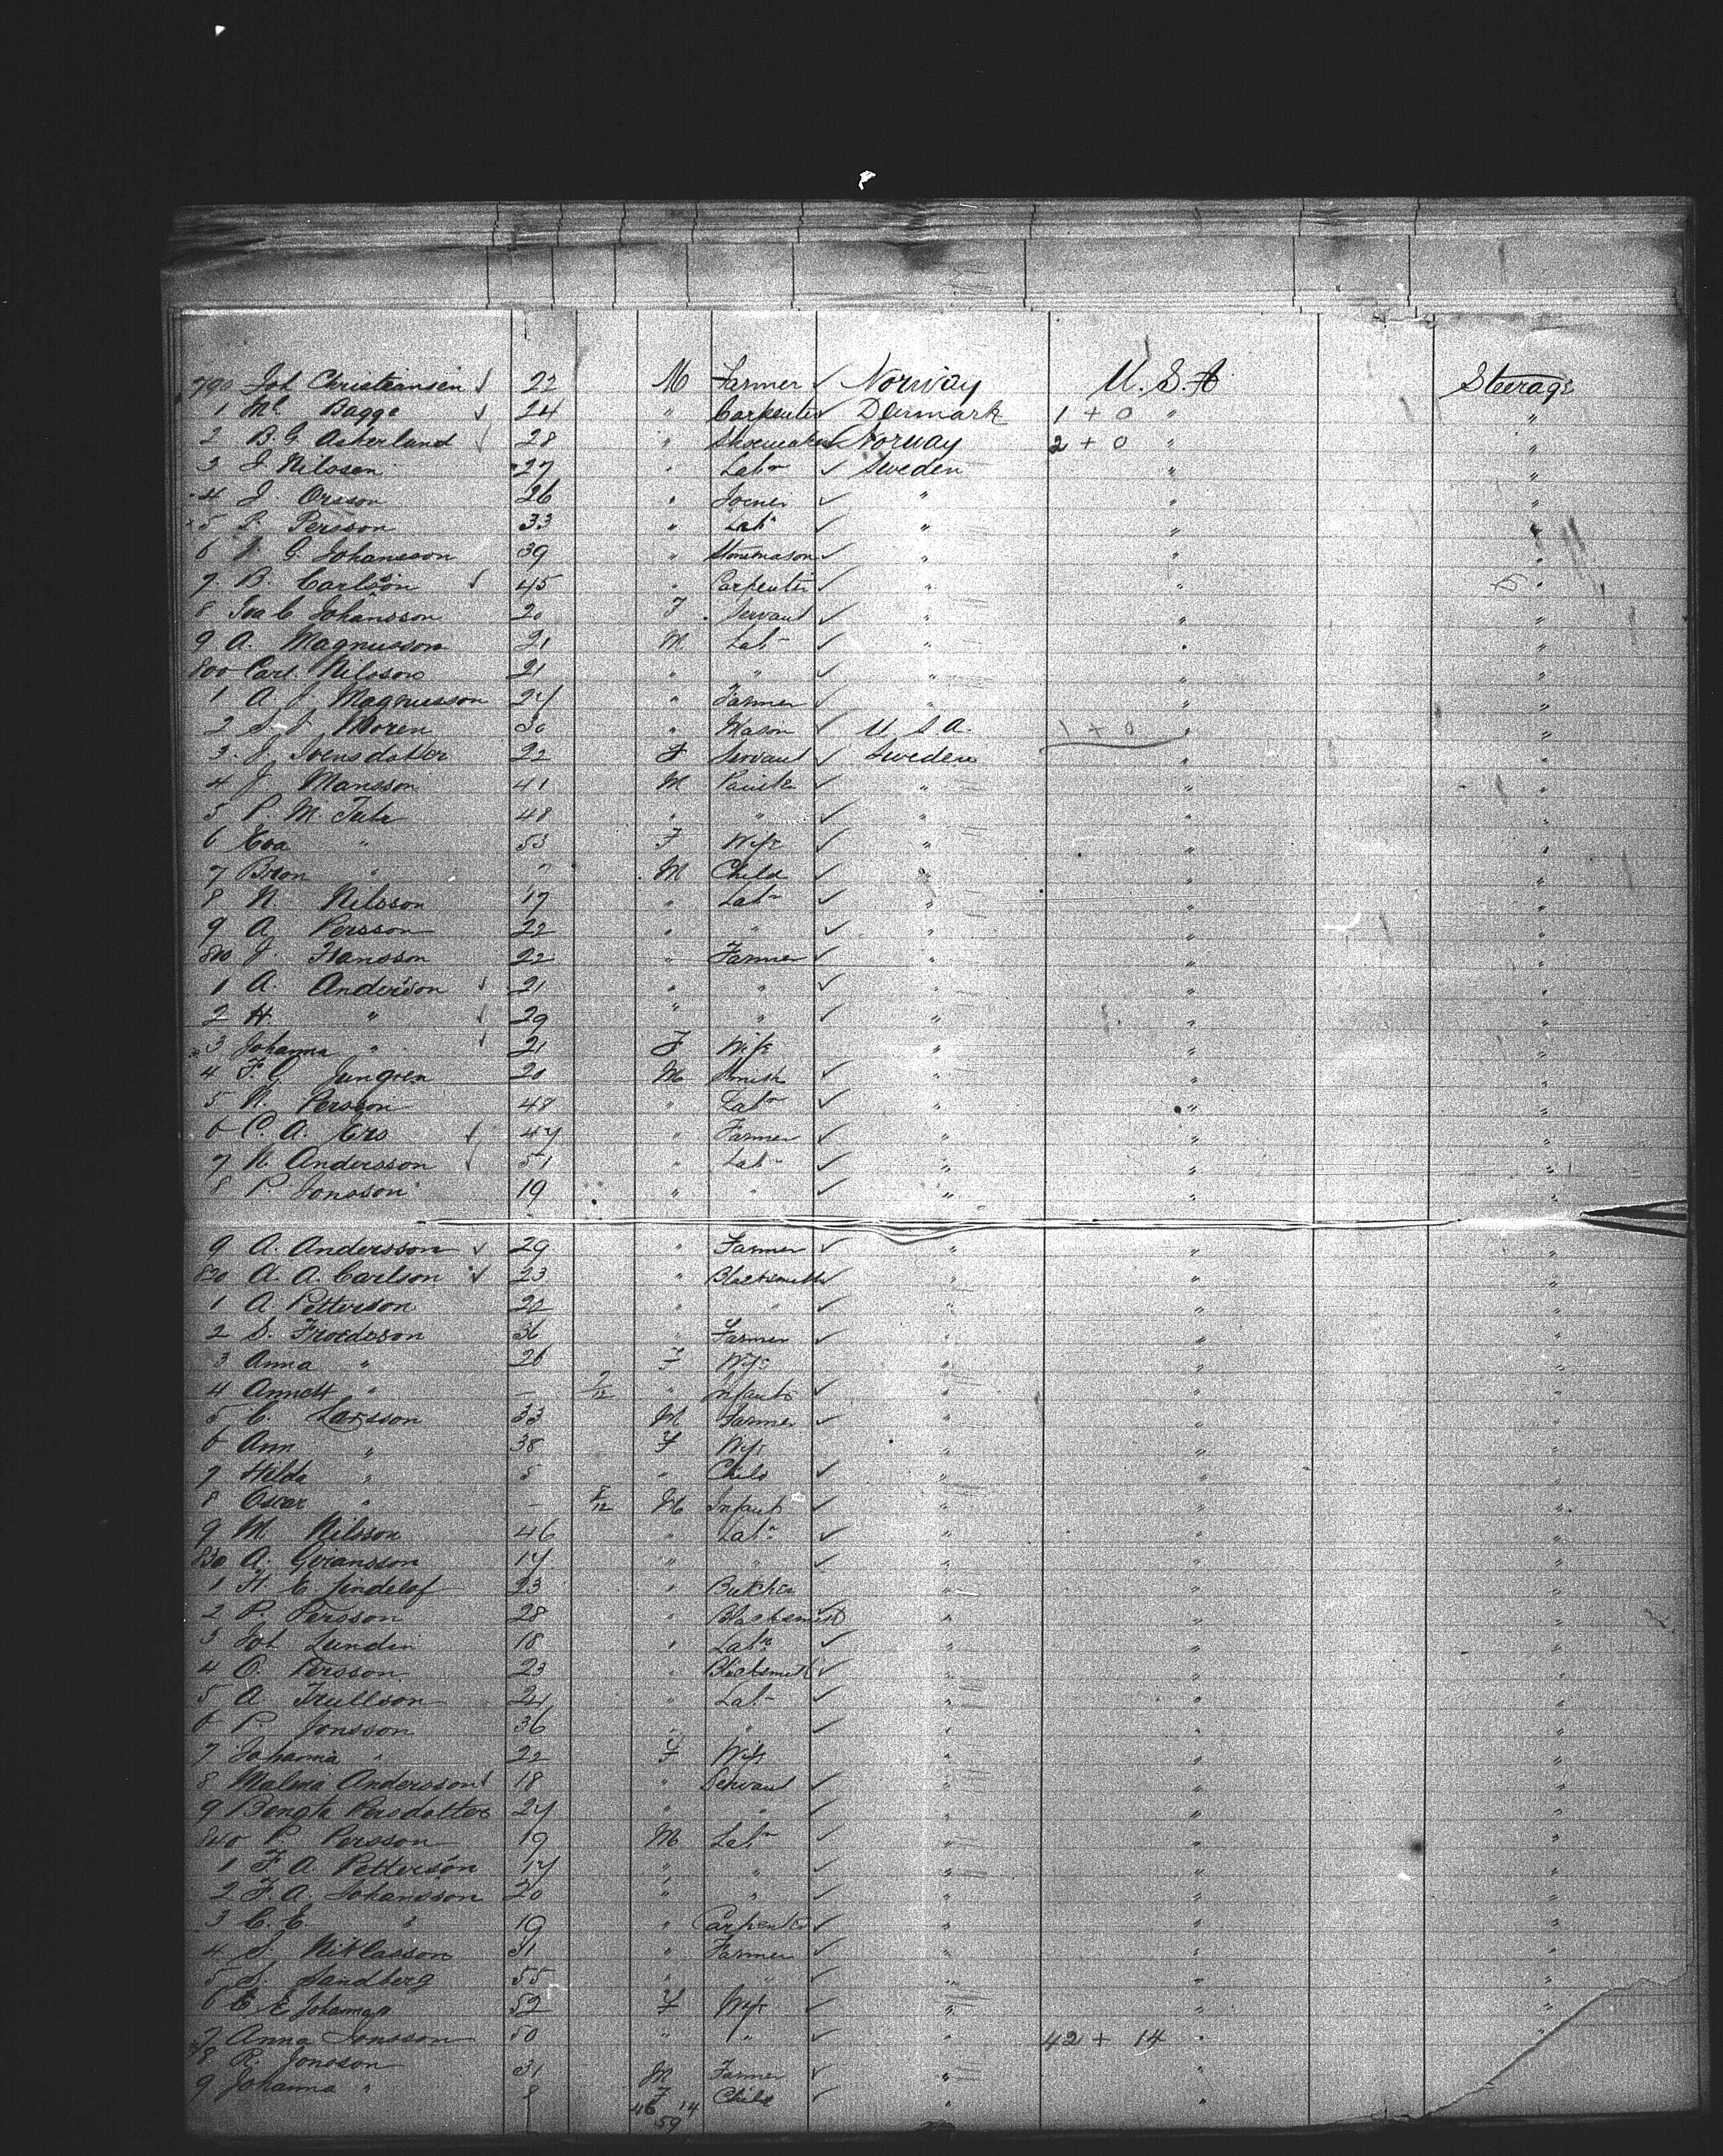 790 Joh Christiansen 22 M Farmer Norway U.S.A Steerage
1 Mc Bagge 24 " Carpenter Denmark 1 + 0 " "
2 B.G. Askerlund 28 " Shoemaker Norway 2 + 0 " "
3 J Nilosen 27 " Labr Sweden " "
4 J. Orsson 26 " Joener " " "
5 P. Persson 33 " Labr " " "
6 J. G. Johansson 39 " Stonemason " " "
7 B. Carlson 45 " Carpenter " " "
8 Ida C Johansson 20 F Servant " " "
9 A. Magnusson 21 M Labr " " "
800 Carl Nilsson 21 " " " " "
1 A J Magnusson 27 " Farmer " " "
2 S. J. Moren 30 " Mason U S A. 1 + 0 " "
3 J Svensdatter 22 F Servant Sweden " "
4 J Mansson 41 M Painter " " "
5 P. M. 48 " " " " "
6 Eva " 53 F Wife " " "
7 " " M Child " " "
8 N Nilsson 17 " Labr " " "
9 A Persson 22 " " " " "
810 J. Hansson 22 " Farmer " " "
1 A. Anderson 21 " " " "
2 H. " 29 " " " " "
3 Johanna " 21 F Wife " " "
4 F. G Jungren 20 M Smith " " "
5 N. Persson 48 " Labr " " "
6 C. A. Ers 47 " Farmer " " "
7 N Andersson 51 " Labr " " "
8 P. Jonsson 19 " " " " "
9 A. Andersson 29 " Farmer " " "
820 A. A. Carlson 23 " Blacksmith " " "
1 A. Petterson 22 " " " "
2 S. 36 " Farmer " " "
3 Anna " 26 F Wife " " "
4 " — 7/12 " Infant " " "
5 C. Larsson 33 M Farmer " " "
6 Ann " 38 F Wife " " "
7 Hilda " 5 " Child " " "
8 Oscar " — 8/12 M Infant " " "
9 M Nilsson 46 " Labr " " "
830 A. Goransson 17 " " " "
1 H C Lindelof 23 " Butcher " "
2 P. Persson 28 " Blacksmith " " "
3 Joh Lundin 18 " Labr " " "
4 O. Persson 23 " Blacksmith " " "
5 A. Trullson 24 " Labr " " "
6 P. Jonsson 36 " " " " "
7 Johanna " 22 F Wife " " "
8 Malena Andersson 18 " Servant " " "
9 Bengta Persdatter 27 " " " " "
840 P Persson 19 M Labr " " "
1 F A. Petterson 17 " " " " "
2 F. A. Johansson 20 " " " " "
3 C. E. " 19 " Carpenter " " "
4 S. Niklasson 31 " Farmer " " "
5 S. Sandberg 55 " " " " "
6 C E Johanna 52 F Wife " " "
7 Anna Jonsson 50 " " " 42 + 14 " "
8 R. Jonsson 31 M Farmer " "
9 Johanna " 8 F Child " "
46 14
59